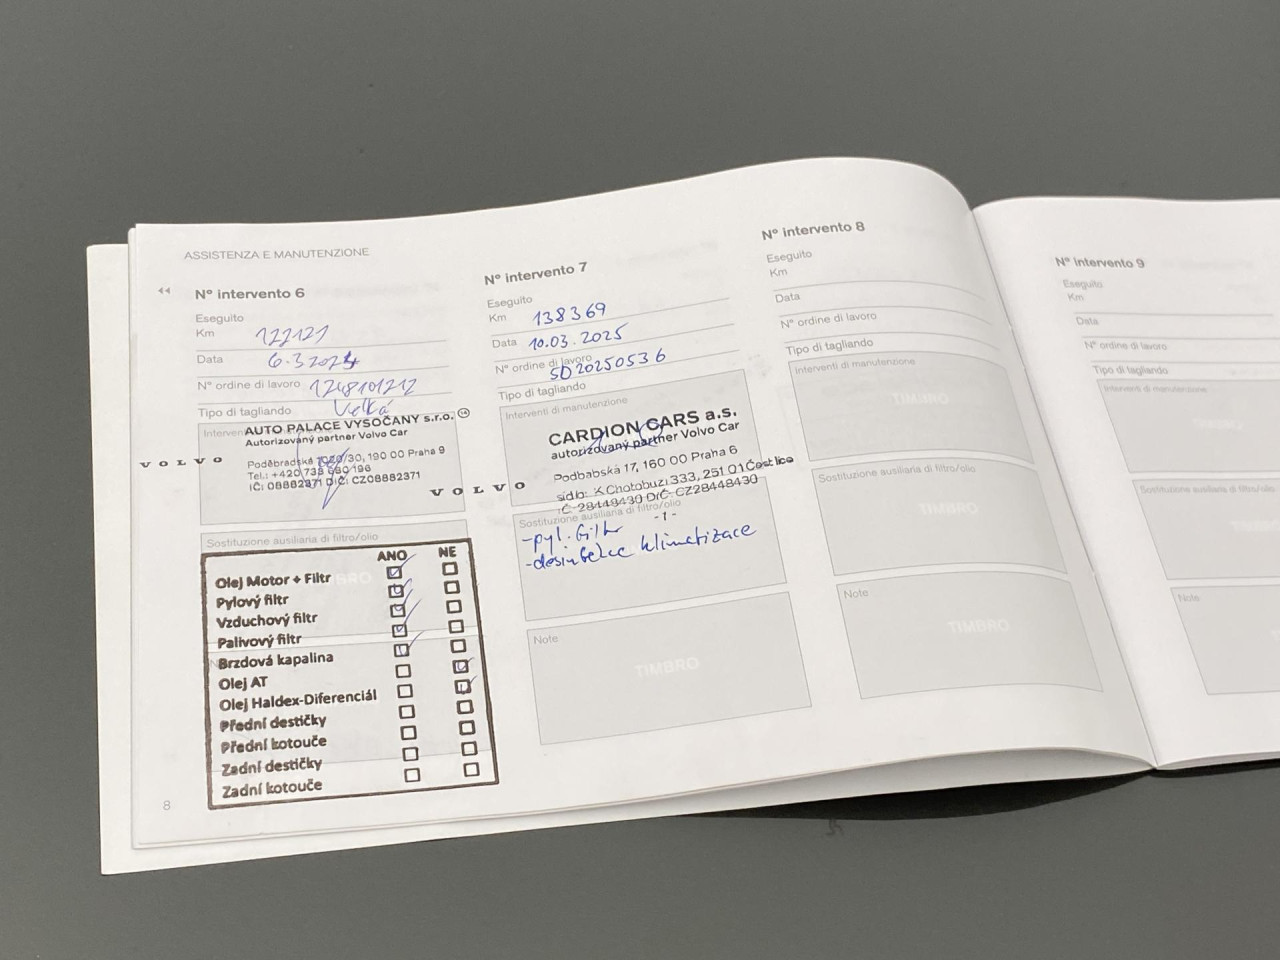 ASSISTENZA E MANUTENZIONE
Nº intervento 6
Eseguito
Km 122121
Data 6.3 2024
Nº ordine di lavoro 1248101212
Tipo di tagliando Velká
AUTO PALACE VYSOČANY s.r.o.
Autorizovaný partner Volvo Car
VOLVO
Poděbradská 1020/30, 190 00 Praha 9
Tel.: +420 738 680 196
IČ: 08882371 DIČ: CZ08882371
Sostituzione ausiliaria di filtro/olio
ANO NE
Olej Motor + Filtr
Pylový filtr
Vzduchový filtr
Palivový filtr
Brzdová kapalina
Olej AT
Olej Haldex-Diferenciál
Přední destičky
Přední kotouče
Zadní destičky
Zadní kotouče
8
Nº intervento 7
Eseguito
Km 138369
Data 10.03.2025
Nº ordine di lavoro
SD20250536
Tipo di tagliando
Interventi di manutenzione
CARDION CARS a.s.
autorizovaný partner Volvo Car
Podbabská 17, 160 00 Praha 6
VOLVO
sídlo: K Chotobuzi 333, 251 01 Čestlice
IČ 28448430 DIČ: CZ28448430
-1-
Sostituzione ausiliaria di filtro/olio
-pyl. filtr
-desinfekce klimatizace
Note
TIMBRO
Nº intervento 8
Eseguito
Km
Data
Nº ordine di lavoro
Tipo di tagliando
Interventi di manutenzione
TIMBRO
Sostituzione ausiliaria di filtro/olio
TIMBRO
Note
TIMBRO
Nº intervento 9
Eseguito
Km
Data
Nº ordine di lavoro
Tipo di tagliando
Interventi di manutenzione
Sostituzione ausiliaria di filtro/olio
Note